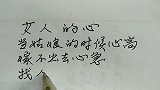 女人的心
当姑娘的时候心高
嫁不出去心急
找